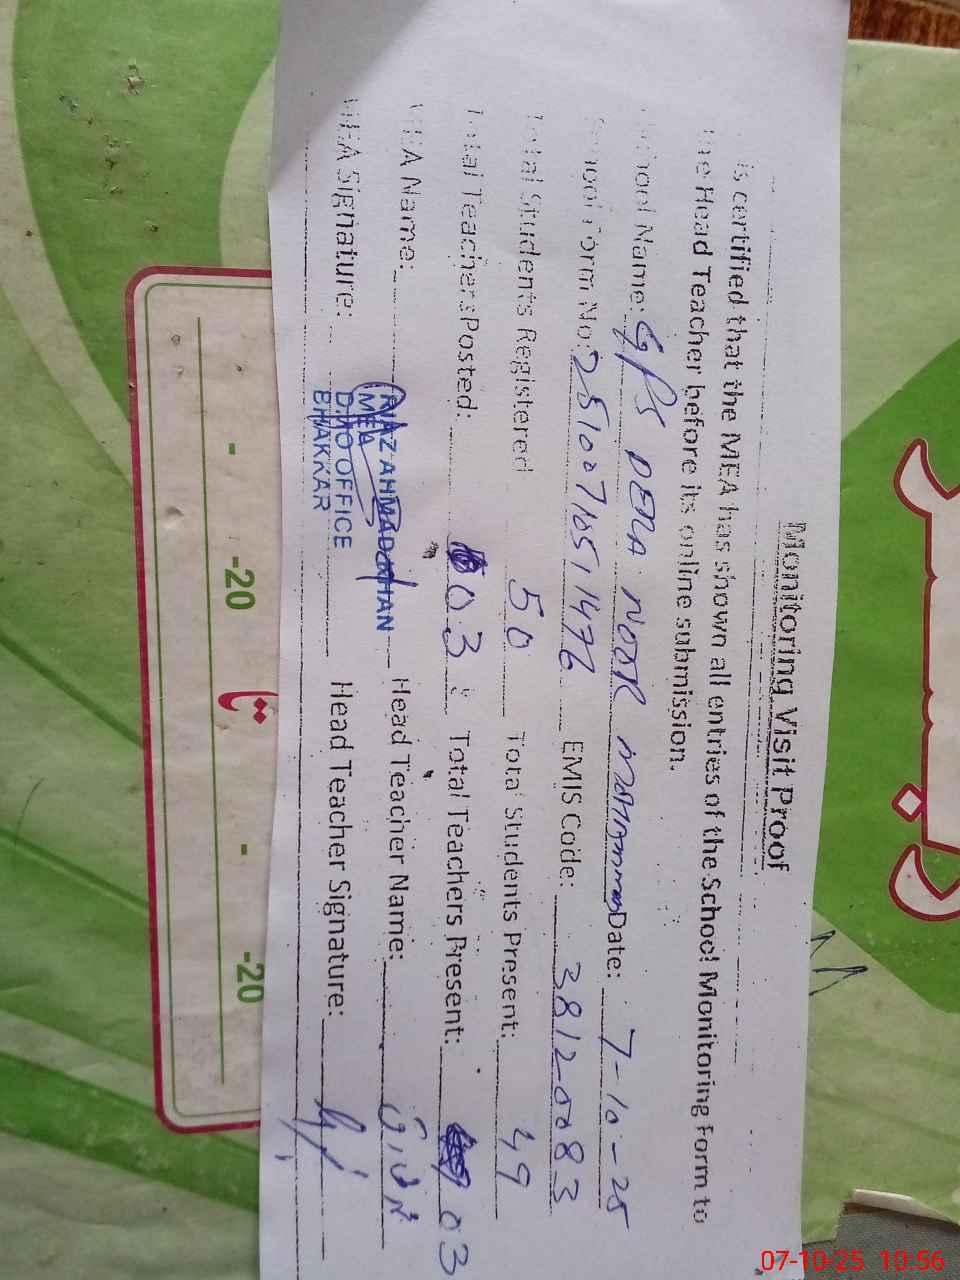 Monitoring Visit Proof
is certified that the MEA has shown all entries of the School Monitoring Form to
the Head Teacher before its online submission.
School Name: GPS DERA NOOR MOHAMMAD Date: 7-10-25
School Form No: 2510071051476 EMIS Code: 38120083
Total Students Registered 50 Total Students Present: 49
Total Teachers Posted: 03 Total Teachers Present: 03
MEA Name: RIAZ AHMAD KHAN Head Teacher Name:
MEA
MEA Signature: D.M.O OFFICE Head Teacher Signature:
BHAKKAR
- -20 تا - -20
07-10-25 10:56